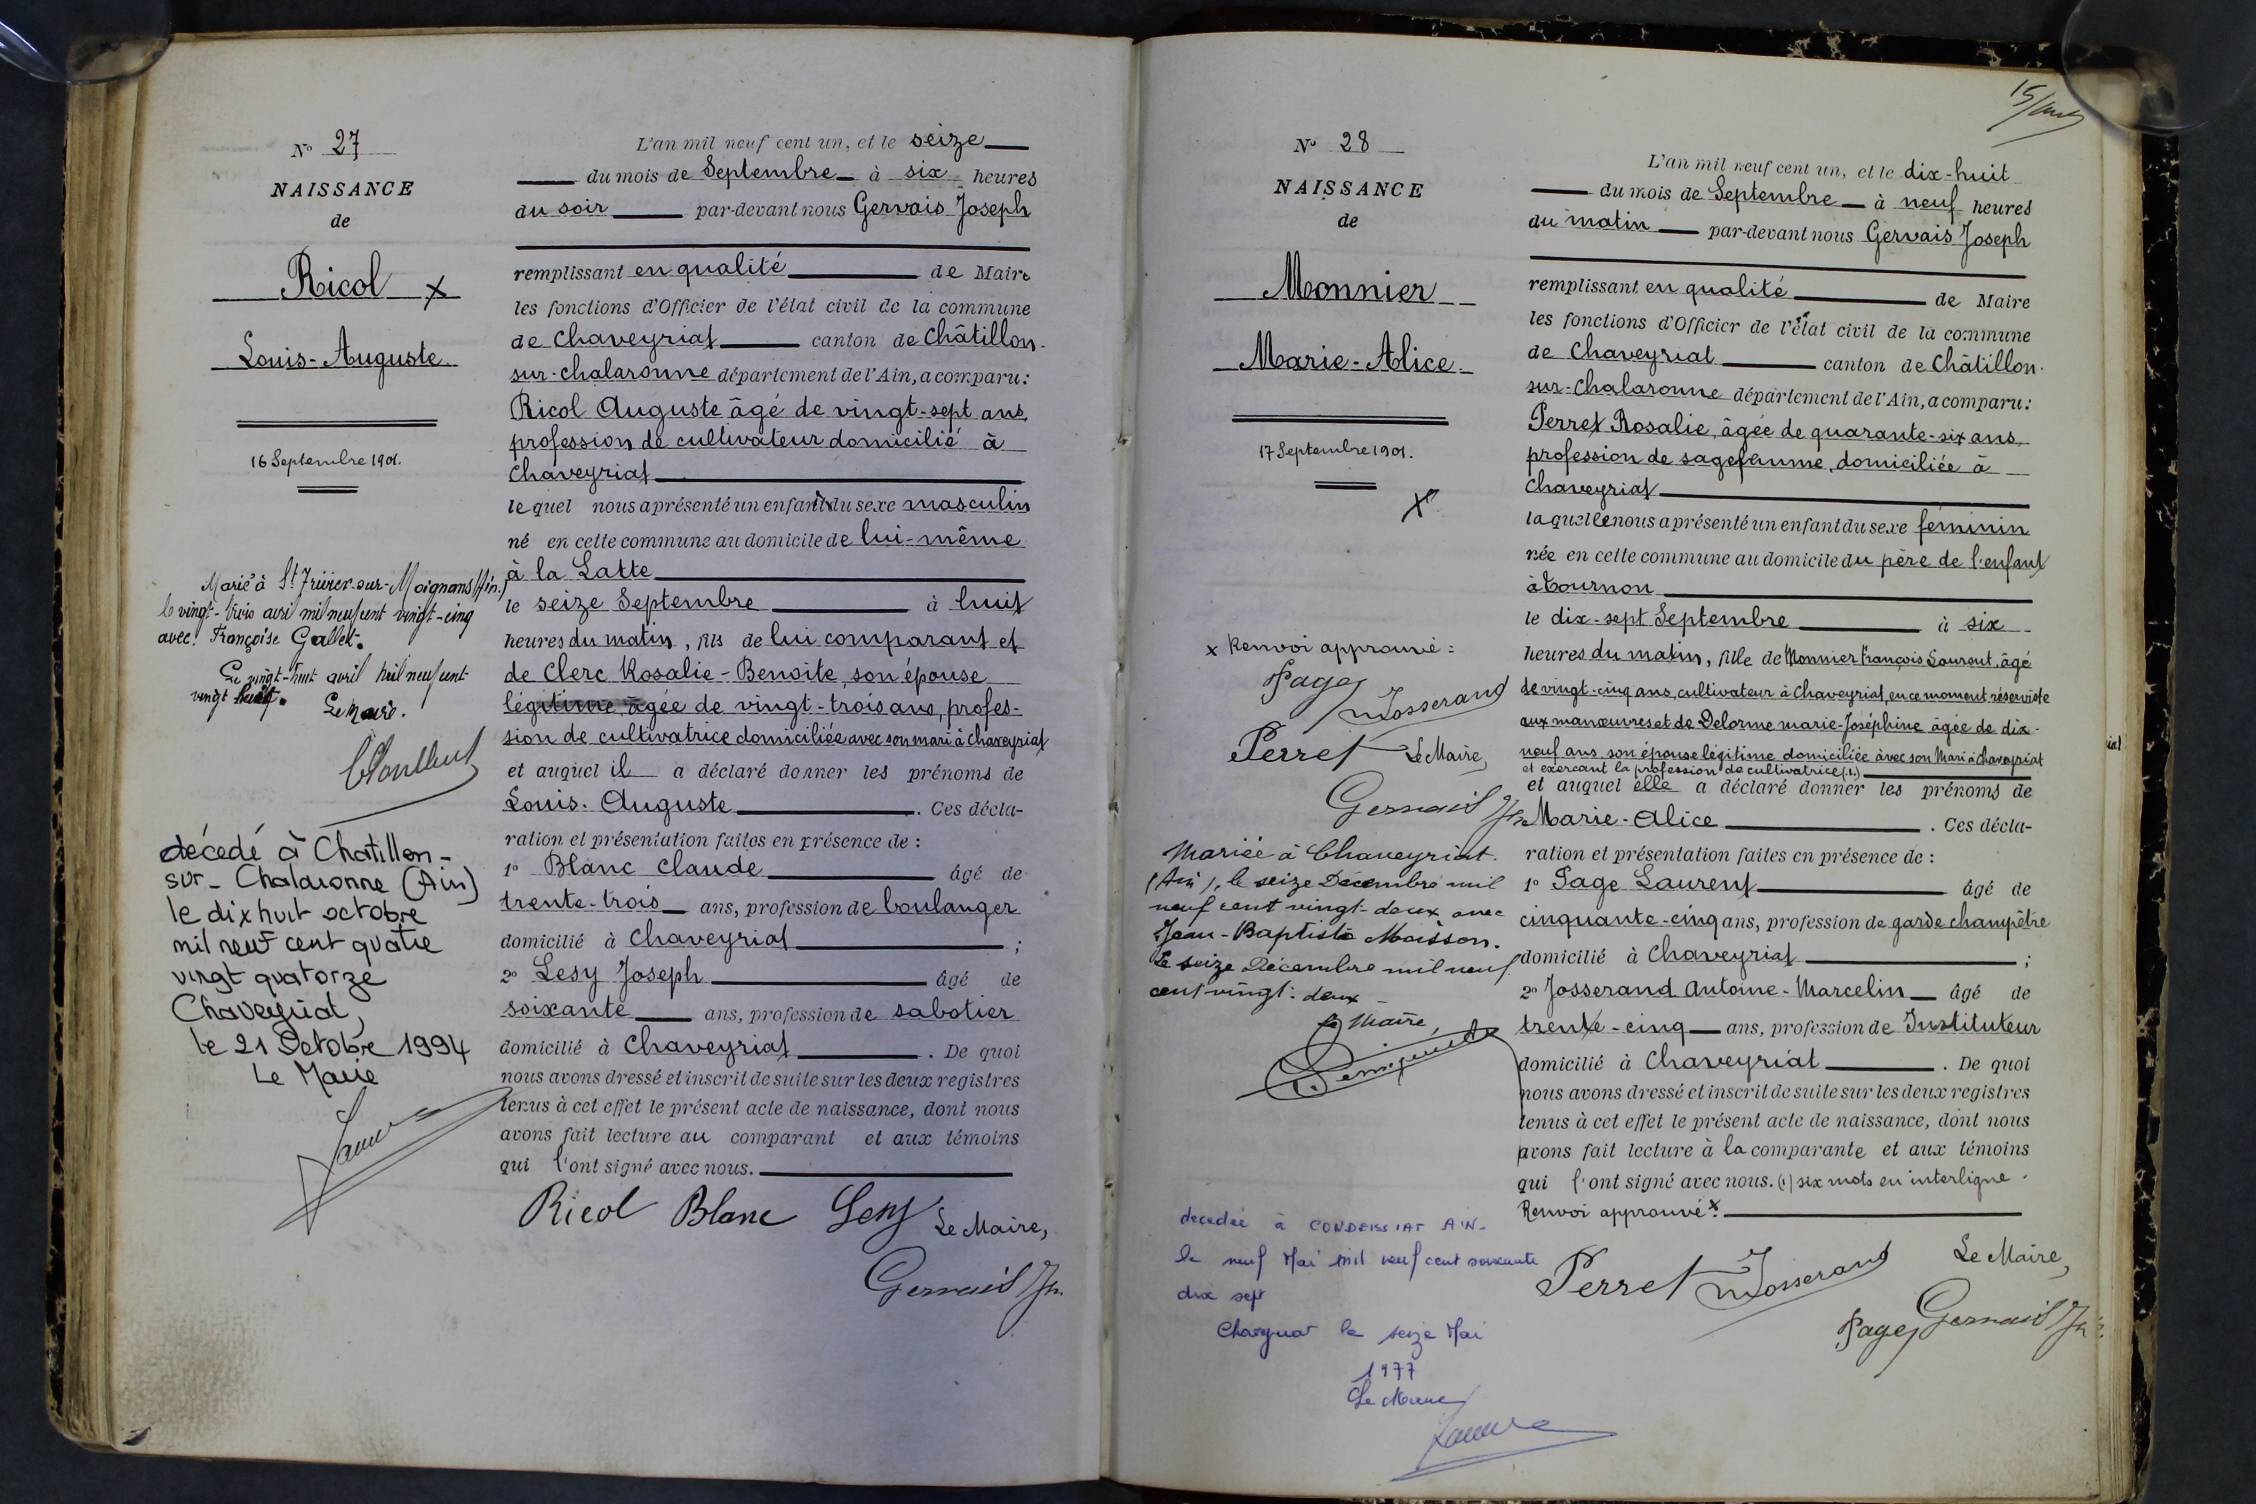 N° 27
NAISSANCE
de
Ricol x
Louis-Auguste
16 Septembre 1901.
Marié à St Trivier-sur-Moignans (Ain.)
le vingt-trois avril mil neuf cent vingt-cinq
avec Françoise Gallet.
Le vingt-huit avril mil neuf cent
vingt
Le Maire.
décedé à Chatillon-
sur-Chalaronne (Ain)
le dix huit octobre
mil neuf cent quatre
vingt quatorze
Chaveyriat,
le 21 Octobre 1994
Le Maire
L'an mil neuf cent un, et le seize
du mois de Septembre à six heures
du soir par-devant nous Gervais Joseph
remplissant en qualité de Maire
les fonctions d'Officier de l'état civil de la commune
de Chaveyriat canton de Châtillon-
sur-chalaronne département de l'Ain, a comparu:
Ricol Auguste âgé de vingt-sept ans,
profession de cultivateur domicilié à
Chaveyriat
lequel nous a présenté un enfant du sexe masculin
né en cette commune au domicile de lui-même
à la Latte
le seize Septembre à huit
heures du matin, fils de lui comparant et
de Clerc Rosalie-Benoite, son épouse
légitime, âgée de vingt-trois ans, profes-
sion de cultivatrice domiciliée avec son mari à Chaveyriat
et auquel il a déclaré donner les prénoms de
Louis-Auguste. Ces décla-
ration et présentation faites en présence de :
1° Blanc Claude âgé de
trente-trois ans, profession de boulanger
domicilié à Chaveyriat ;
2° Lesy Joseph âgé de
soixante ans, profession de sabotier
domicilié à Chaveyriat. De quoi
nous avons dressé et inscrit de suite sur les deux registres
tenus à cet effet le présent acte de naissance, dont nous
avons fait lecture au comparant et aux témoins
qui l'ont signé avec nous.
Ricol Blanc Lesy Le Maire,
Gervais Jh
15/
N° 28
NAISSANCE
de
Monnier
Marie-Alice
17 Septembre 1901.
x
x Renvoi approuvé :
Page
Josserand
Perret Le Maire,
Gervais Jh
Mariée à Chaveyriat
(Ain), le seize Décembre mil
neuf cent vingt-deux avec
Jean-Baptiste Moisson.
Le seize Décembre mil neuf
cent vingt-deux -
Le Maire,
decedée à CONDEISSIAT AIN-
le neuf Mai mil neuf cent soixante
dix sept
Chaveyriat le seize Mai
1977
Le Maire
L'an mil neuf cent un, et le dix-huit
du mois de Septembre à neuf heures
du matin par-devant nous Gervais Joseph
remplissant en qualité de Maire
les fonctions d'Officier de l'état civil de la commune
de Chaveyriat canton de Châtillon-
sur-Chalaronne département de l'Ain, a comparu:
Perret Rosalie, âgée de quarante-six ans,
profession de sagefemme, domiciliée à
Chaveyriat
laquelle nous a présenté un enfant du sexe féminin
née en cette commune au domicile du père de l'enfant
à Tournon
le dix-sept Septembre à six
heures du matin, fille de Monnier François Laurent, âgé
de vingt-cinq ans, cultivateur à Chaveyriat, en ce moment réserviste
aux manœuvres et de Delorme Marie-Joséphine âgée de dix-
neuf ans son épouse légitime domiciliée avec son Mari à Chaveyriat
et exercant la profession de cultivatrice (1.)
et auquel elle a déclaré donner les prénoms de
Marie-Alice. Ces décla-
ration et présentation faites en présence de :
1° Page Laurent âgé de
cinquante-cinq ans, profession de garde champêtre
domicilié à Chaveyriat ;
2° Josserand Antoine-Marcelin âgé de
trente-cinq ans, profession de Instituteur
domicilié à Chaveyriat. De quoi
nous avons dressé et inscrit de suite sur les deux registres
tenus à cet effet le présent acte de naissance, dont nous
avons fait lecture à la comparante et aux témoins
qui l'ont signé avec nous. (1) six mots en interligne.
Renvoi approuvé x.
Perret Josserand Le Maire,
Page Gervais Jh